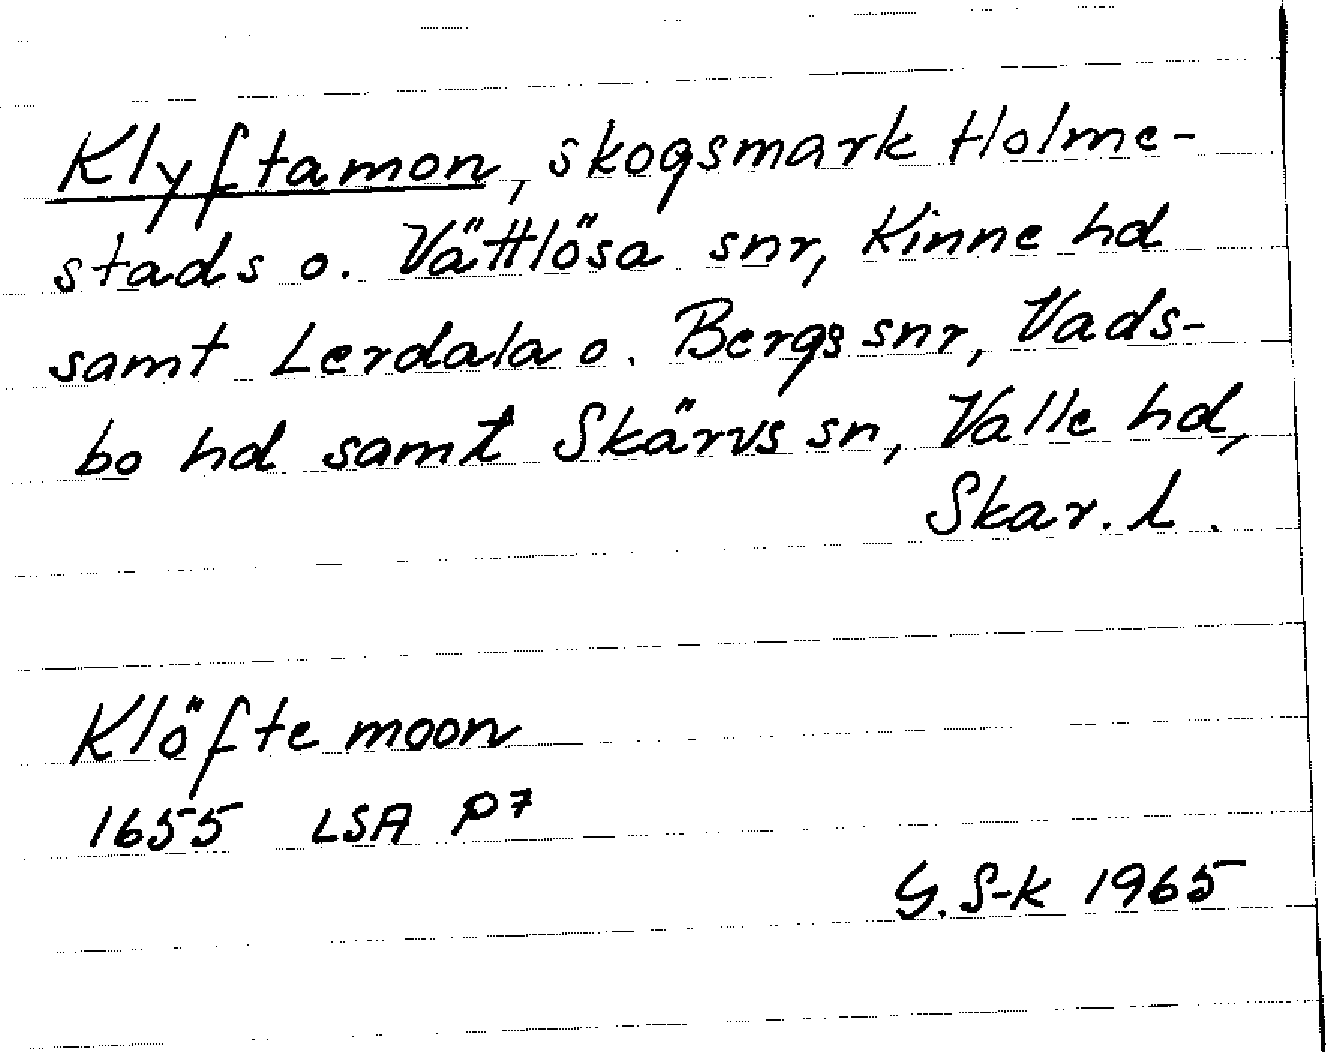 Klyftamon, skogsmark Holme-
stads o. Vättlösa snr, Kinne hd
samt Lerdala o. Bergs snr, Vads-
bo hd samt Skärvs sn, Valle hd,
Skar. l.
Klöfte moon
1655 LSA P7
G. S-k 1965